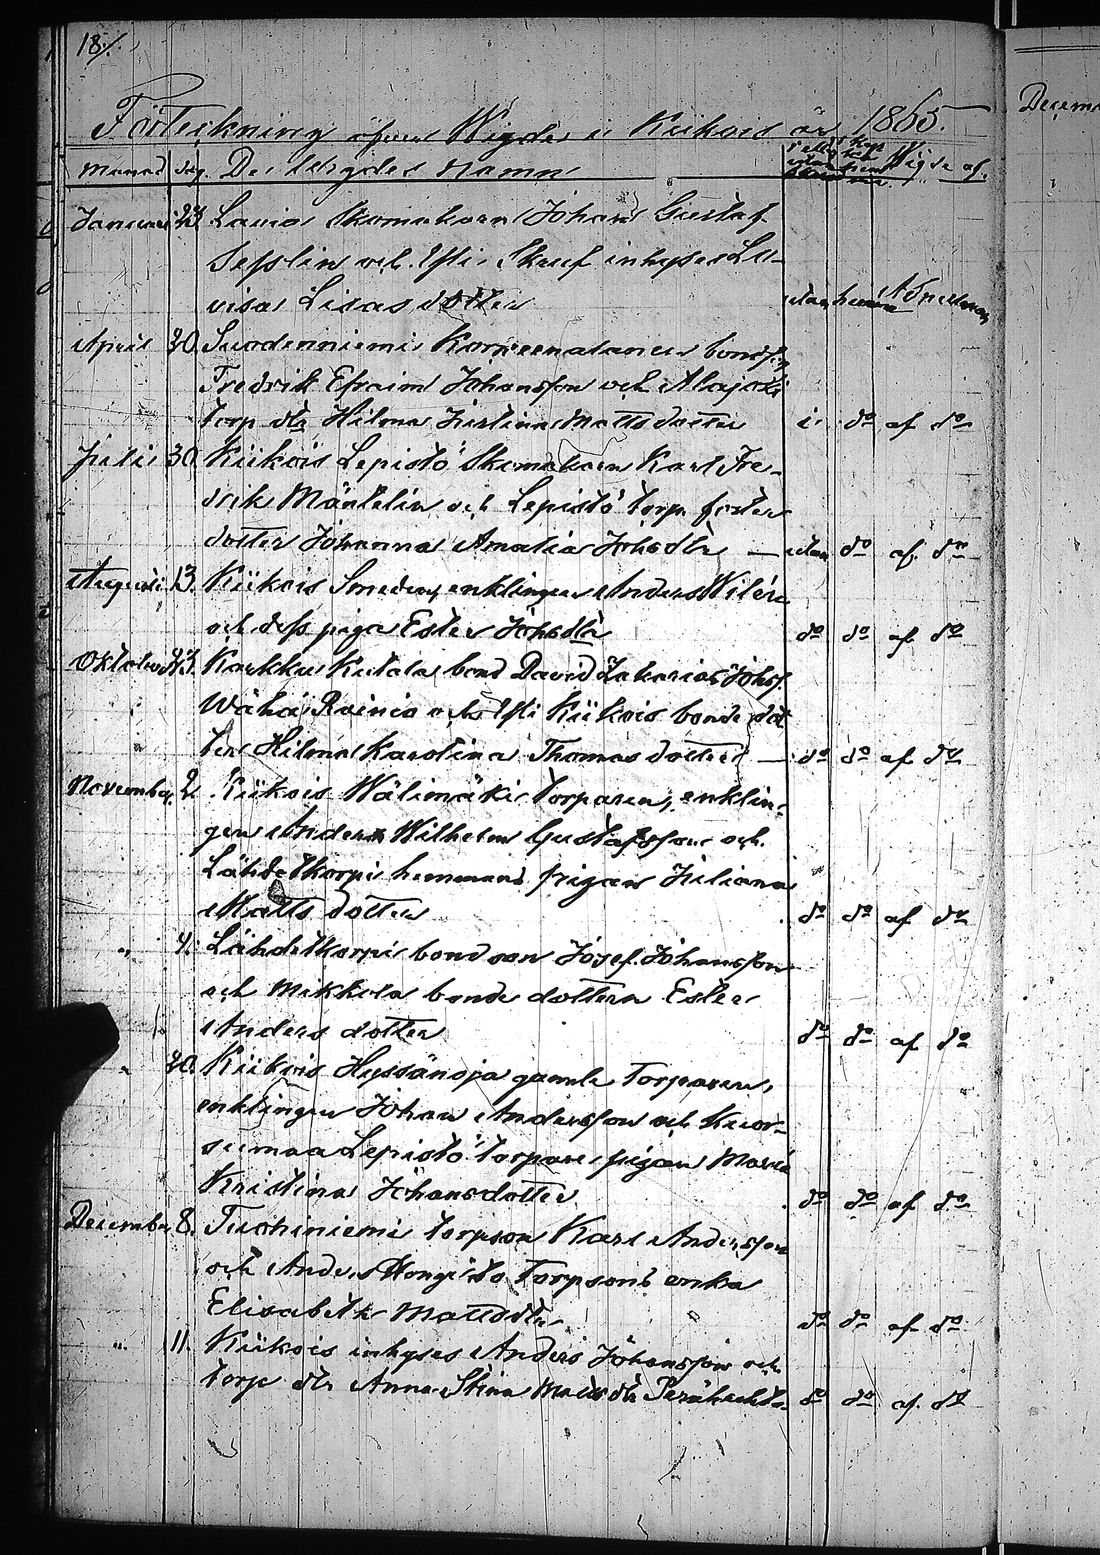 18/.
Förteckning öfver Wigde i Kiikois år 1865.
Månad dag. De Wigdes Namn Wigde af.
Januari 23. Lavia Skomakaren Johan Gustaf
Sefslin och inhyses Lo-
visa Lisas dotter utan
April 20. Suodenniemi bonds.
Fredrik Efraim Johansson och Alajoki
torp dtr Hilma Justina Matts dotter i do af do
Juli 30. Kiikois Lepistö Skomakaren Karl Fre-
drik Mäntelin och Lepistö torp. foster
dotter Johanna Amalia Johsdtr — utan do af do
Augusti 13. Kiikois Smeden, enklingen Anders Wilén
och dess piga Ester Johsdtr do do af do
Oktober Karkku Kutala bond David Zakarias Johss.
Wähä Rainio och Kiikois bonde dot
ter Hilma Karolina Thomas dotter — do do af do
November 2. Kiikois Wälimäki Torparen, enklin-
gen Anders Wilhelm Gustafsson och
Lähdekorpi hemmans pigan Juliana
Matts dotter do do af do
" 4. Lähdekorpi bondson Josef Johansson
och Mikkola bonde dottern Ester
Anders dotter do do af do
" 20. Kiikois Hyssänoja gamle Torparen,
enklingen Johan Andersson och Kuor-
sumaa Lepistö torpare pigan Maria
Kristina Johansdotter do do af do
December 8. torpson Karl Andersson
och Anders Torpsons enka
Elisabeth Mattsdtr. do do af do
" 11. Kiikois inhyses Anders Johansson och
torp dtr Anna Stina Matsdtr do do af do
Decem